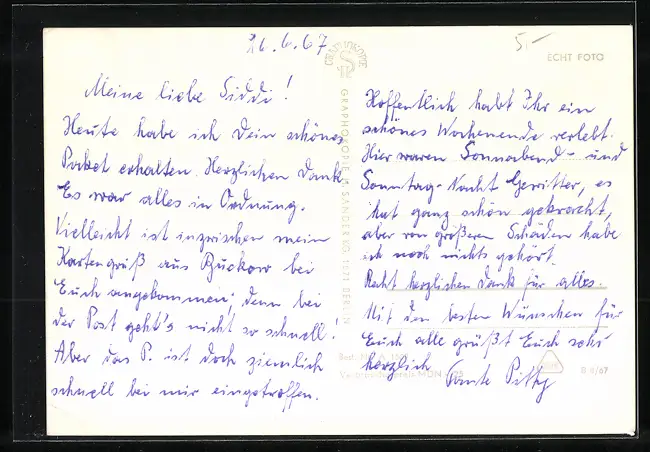 26.6.67
5.–
ECHT FOTO
Meine liebe Siddi!
Heute habe ich Dein schönes
Packet erhalten. Herzlichen Dank.
Es war alles in Ordnung.
Vielleicht ist inzwischen mein
Kartengruß aus Buckow bei
Euch angekommen; denn bei
der Post geht's nicht so schnell!
Aber das P. ist doch ziemlich
schnell bei mir eingetroffen.
GRAPHOKOPIE H. SANDER KG. 1071 BERLIN
Hoffentlich habt Ihr ein
schönes Wochenende verlebt.
Hier waren Sonnabend- und
Sonntag-Nacht Gewitter, es
hat ganz schön gekracht,
aber von größeren Schäden habe
ich noch nichts gehört.
Recht herzlichen Dank für alles.
Mit den besten Wünschen für
Euch alle grüßt Euch sehr
herzlich Tante
Best.
Verbraucherpreis MDN
B 8/67